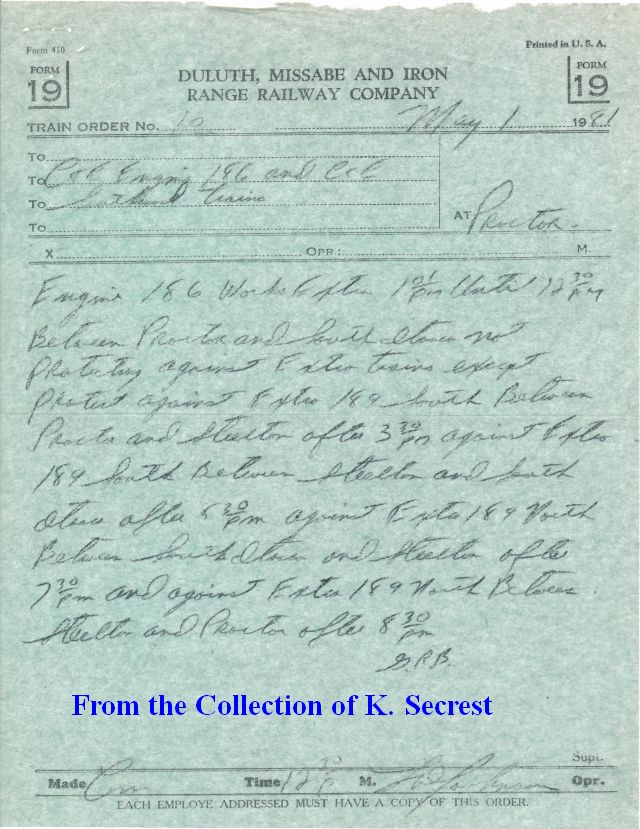 Form 450
Printed in U. S. A.
FORM
19
DULUTH, MISSABE AND IRON
RANGE RAILWAY COMPANY
FORM
19
TRAIN ORDER No. 10 May 1 1981
To
To C&E Engine 186 and C&E
To Southbound Trains
To
AT Proctor
X OPR: M.
Engine 186 Works Extra 1 01 pm Until 12 30 pm
Between Proctor and South Itasca not
Protecting against Extra trains except
protect against Extra 189 South Between
Proctor and Steelton after 3 30 pm against Extra
189 South Between Steelton and South
Itasca after 5 30 pm against Extra 189 North
Between South Itasca and Steelton after
7 30 pm and against Extra 189 North Between
Steelton and Proctor after 8 30 pm
G.P.B.
From the Collection of K. Secrest
Supt.
Made Com Time 12 30 P M. Opr.
EACH EMPLOYE ADDRESSED MUST HAVE A COPY OF THIS ORDER.